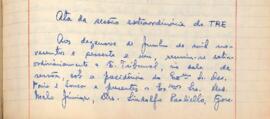 Ata da sessão extraordinária do TRE
Aos dezenove de Junho de mil no-
vecentos e sessenta e um, reuniu-se extra-
ordinariamente o E. Tribunal, na sala de
sessão, sob a presidência do Exmo Sr. Des.
e presentes os Exmos Srs. Des.
Mello Júnior, Drs. Lindolfo